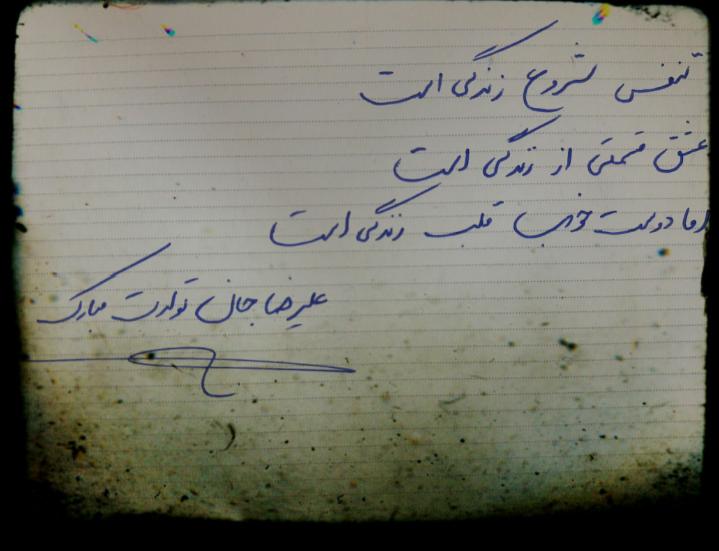 تنفس شروع زندگی است
عشق قسمتی از زندگی است
اما دوست خوب قلب زندگی است
علیرضا جان تولدت مبارک